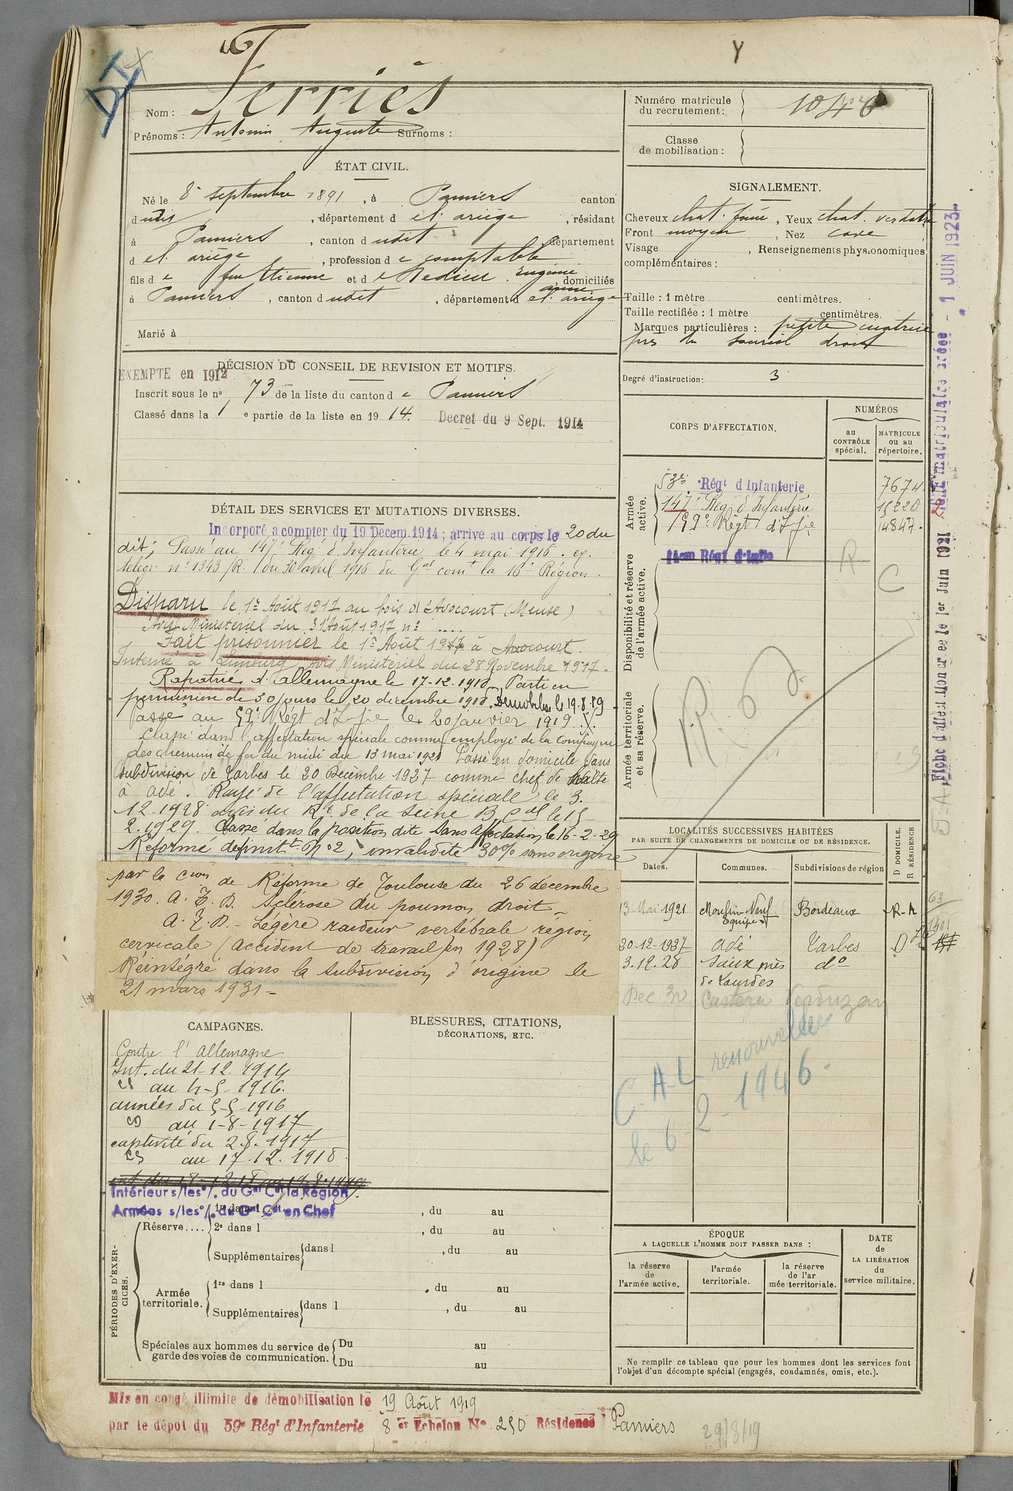 Y
Nom : Ferriès
Prénoms : Antonin Auguste Surnoms :
Numéro matricule
du recrutement : 1046
Classe
de mobilisation :
ÉTAT CIVIL.
Né le 8 septembre 1891, à Pamiers canton
dudit, département d et ariège, résidant
à Pamiers, canton dudit département
d et ariège, profession de comptable
fils de feu Etienne et de Redieu Eugénie
anne domiciliés
à Pamiers, canton dudit, département d et ariège
Marié à
SIGNALEMENT.
Cheveux chat. foncé, Yeux chat. verdatre
Front moyen, Nez cave
Visage , Renseignements physionomiques
complémentaires :
Taille : 1 mètre centimètres.
Taille rectifiée : 1 mètre centimètres.
Marques particulières : petite cicatrice
près du sourcil droit
Degré d'instruction : 3
DÉCISION DU CONSEIL DE REVISION ET MOTIFS.
EXEMPTE en 1912
Inscrit sous le n° 73 de la liste du canton de Pamiers
Classé dans la 1e partie de la liste en 1914. Decret du 9 Sept. 1914
CORPS D'AFFECTATION.
NUMÉROS
au
CONTRÔLE
spécial.
MATRICULE
ou au
répertoire.
Armée
active.
53e Régt d'Infanterie 7674
147e Rég. d'Infanterie 15220
159e Régt d'Ifie 14847
Disponibilité et réserve
de l'armée active.
R
C
Armée territoriale
et sa réserve.
DÉTAIL DES SERVICES ET MUTATIONS DIVERSES.
Incorporé a compter du 19 Décem. 1914 ; arrive au corps le 20 du
dit ; Passé au 147e Rég. d'Infanterie le 4 mai 1916. ex.
téleg. n° 1343/R du 30 avril 1916 du Gal comt la 16e Région.
Disparu le 1er Août 1917 au bois d'Avocourt (Meuse)
Avis Ministeriel du 31 Août 1917 n° .....
Fait prisonnier le 1er Août 1917 à Avocourt.
Interné à Limburg avis Ministeriel du 28 Novembre 1917.
Rapatrié d'Allemagne le 17-12-1918 Parti en
permission de 30 jours le 20 décembre 1918. Démobilisé le 19.8.19
Passé au 59e Régt d'Ifie le 20 janvier 1919.
Classé dans l'affectation spéciale comme employé de la compagnie
des chemins de fer du midi du 13 mai 1921 Passé en domicile dans
subdivision de Tarbes le 20 Décembre 1927 comme chef de halte
à adé. Rayé de l'affectation spéciale le 3.
12.1928 avis du Rt de la Seine Bal le 15
2.1929. Classé dans la position dite Sans affectation le 16-2-29
Réformé définitt n°2, invalidité 30% sans origine
par la Cion de Réforme de Toulouse du 26 décembre
1930. A.T.D. Sclérose du poumon droit
A.T.D. Légère raideur vertébrale région
cervicale (accident de travail en 1928)
Réintégré dans la subdivision d'origine le
21 mars 1931 -
LOCALITÉS SUCCESSIVES HABITÉES
PAR SUITE DE CHANGEMENTS DE DOMICILE OU DE RÉSIDENCE.
Dates. Communes. Subdivisions de région D DOMICILE. R RÉSIDENCE
13 Mai 1921 Moulin-Neuf Bordeaux R
20-12-1927 Adé Tarbes D
3.12.28 Saux près do
de Lourdes
C.A.L. renouvelée
le 6-2-1946.
CAMPAGNES.
Contre l'Allemagne
Int. du 21.12.1914
au 4-5-1916.
armées du 5-5-1916
au 1-8-1917
captivité du 2.8.1917
au 17.12.1918
Intérieur s/les o/. du Gal Ct la Région.
Armées s/les o/. du Gal Ct en Chef
BLESSURES, CITATIONS,
DÉCORATIONS, ETC.
PÉRIODES D'EXERCICES.
Réserve.... 1re dans l , du au
2e dans l , du au
Supplémentaires dans l , du au
Armée
territoriale. 1re dans l , du au
Supplémentaires dans l , du au
Spéciales aux hommes du service de
garde des voies de communication. Du au
Du au
ÉPOQUE
A LAQUELLE L'HOMME DOIT PASSER DANS :
la réserve
de
l'armée active.
l'armée
territoriale.
la réserve
de l'ar
mée territoriale.
DATE
de
LA LIBÉRATION
du
service militaire.
Ne remplir ce tableau que pour les hommes dont les services font
l'objet d'un décompte spécial (engagés, condamnés, omis, etc.).
Mis en congé illimité de démobilisation le 19 Août 1919
par le dépôt du 59e Rég' d'Infanterie 8er Echelon N° 250 Résidence Pamiers
29/8/19
1 JUIN 1923